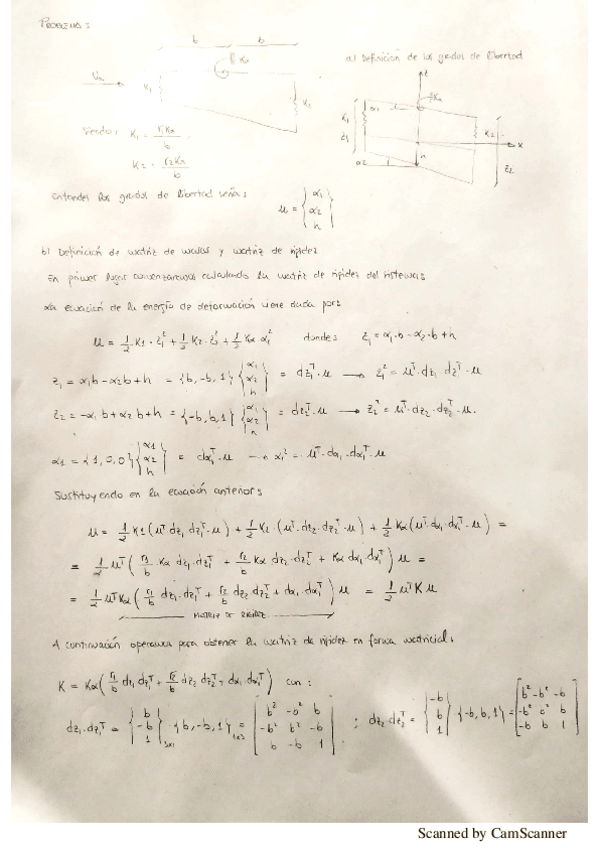 PROBLEMA 3
b b
Kα
a) Definición de los grados de libertad
U∞
K1
K2
z
Kα
α1
K1
z1
K2
x
α2
h
z2
Siendo: K1 = r1Kα/b
K2 = r2Kα/b
entonces los grados de libertad serían:
u = {α1 α2 h}
b) Definición de matriz de masas y matriz de rigidez
En primer lugar comenzaremos calculando la matriz de rigidez del sistema:
La ecuación de la energía de deformación viene dada por:
u = 1/2 K1·z1² + 1/2 K2·z2² + 1/2 Kα α1² donde: z1 = α1·b - α2·b + h
z1 = α1b - α2b + h = {b, -b, 1}{α1 α2 h} = dz1ᵀ·u → z1² = uᵀ·dz1·dz1ᵀ·u
z2 = -α1 b + α2 b + h = {-b, b, 1}{α1 α2 h} = dz2ᵀ·u → z2² = uᵀ·dz2·dz2ᵀ·u.
α1 = {1, 0, 0}{α1 α2 h} = dα1ᵀ·u → α1² = uᵀ·dα1·dα1ᵀ·u
Sustituyendo en la ecuación anterior:
u = 1/2 K1(uᵀ·dz1 dz1ᵀ·u) + 1/2 K2·(uᵀ·dz2·dz2ᵀ·u) + 1/2 Kα(uᵀ·dα1·dα1ᵀ·u) =
= 1/2 uᵀ( r1/b Kα dz1·dz1ᵀ + r2/b Kα dz2·dz2ᵀ + Kα dα1 dα1ᵀ) u =
= 1/2 uᵀKα( r1/b dz1·dz1ᵀ + r2/b dz2 dz2ᵀ + dα1·dα1ᵀ) u = 1/2 uᵀ K u
MATRIZ DE RIGIDEZ
A continuación operamos para obtener la matriz de rigidez en forma matricial:
K = Kα( r1/b dz1 dz1ᵀ + r2/b dz2 dz2ᵀ + dα1 dα1ᵀ) con:
dz1·dz1ᵀ = {b -b 1}3x1 · {b, -b, 1}1x3 = [b² -b² b
-b² b² -b
b -b 1] ; dz2·dz2ᵀ = {-b b 1}·{-b, b, 1} = [b² -b² -b
-b² b² b
-b b 1]
Scanned by CamScanner